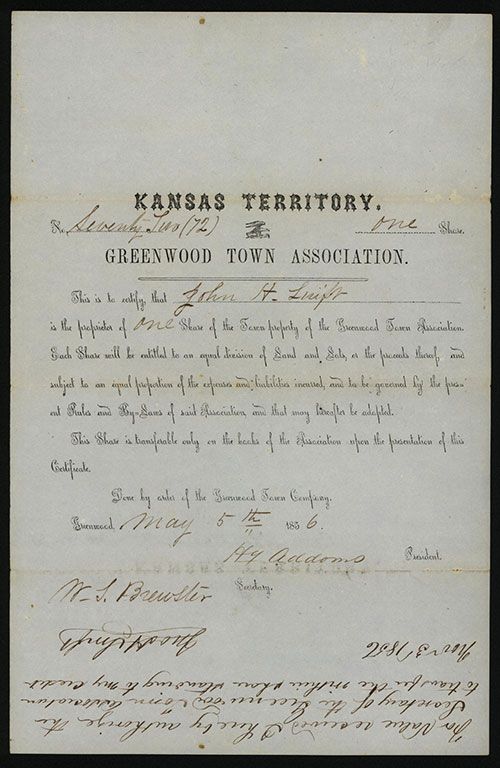 KANSAS TERRITORY.
No. Seventy Two (72) one Share.
GREENWOOD TOWN ASSOCIATION.
This is to certify, that John H. Swift
is the proprietor of one Share of the Town property of the Greenwood Town Association.
Each Share will be entitled to an equal division of Land and Lots, or the proceeds thereof, and
subject to an equal proportion of the expenses and liabilities incurred, and to be governed by the pres-
ent Rules and By-Laws of said Association, and that may hereafter be adopted.
This Share is transferable only on the books of the Association upon the presentation of this
Certificate.
Done by order of the Greenwood Town Company.
Greenwood, May 5th 1856.
Hy Addoms President.
W. S. Brewster Secretary.
For Value received I hereby authorize the
Secretary of the Greenwood Town Association
to transfer the within share standing to my credit
Nov 3d 1856